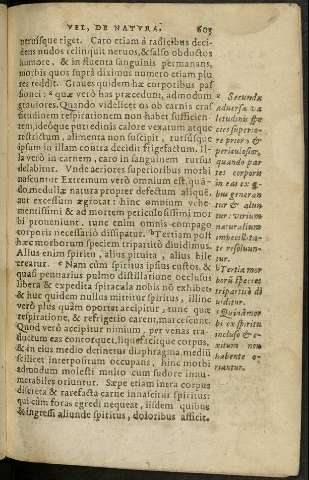 VEL, DE NATVRA. 605
utrúsque riget. Caro etiam à radicibus deci-
dens nudos relinquit neruos, & falso obductos
humore, & in fluenta sanguinis permanans,
morbis quos suprà diximus numero etiam plu
res reddit. Graues quidem hæ corporibus pas
siones: quæ verò has præcedunt, admodum
grauiores. Quando videlicet os ob carnis crass
titudinem respirationem non habet sufficien-
tem, ideóque putredinis calore vexatum atque
restrictum, alimenta non suscipit, rursúsque
ipsum in illam contra decidit frigefactum. Il-
la verò in carnem, caro in sanguinem rursus
delabitur. Vnde aeriores superioribus morbi
nascuntur. Extremum verò omnium est, quã-
do medullæ natura propter defectum aliquẽ,
aut excessum ægrotat: hinc omnium vehe-
mentissimi & ad mortem periculosissimi mor
bi proueniunt, tunc enim omnis compago
corporis necessariò dissipatur. Tertiam post
hæc morborum speciem tripartitò diuidimus.
Alius enim spiritu, alius pituita, alius bile
creatur. Nam cùm spiritus ipsius custos, &
quasi penuarius pulmo distillatione occlusus
libera & expedita spiracula nobis nõ exhibet,
& huc quidem nullus mittitur spiritus, illinc
verò plus quàm oportet accipitur, tunc quæ
respiratione, & refrigerio carent, marcescunt.
Quod verò accipitur nimium, per venas tra-
ductum eas contorquet, liquefacitque corpus,
& in eius medio detinetur diaphragma, mediũ
scilicet interpositum occupans, hinc morbi
admodum molesti multo cum sudore innu-
merabiles oriuntur. Sæpe etiam intra corpus
discreta & rarefacta carne innascitur spiritus:
qui cùm foras egredi nequeat, iisdem quibus
& ingressi aliunde spiritus, doloribus afficit.
Secundæ
aduersa va
letudinis spe
cies superio-
re prior &
periculosior,
quando par
tes corporis
in eas ex qui
bus generan
tur & alun
tur, virium
naturalium
imbecillita-
te resoluun-
tur.
Tertia mor
borũ species
tripartitò di
uiditur.
Quinã mor
bi ex spiritu
incluso & e-
xitum non
habente o-
riantur.